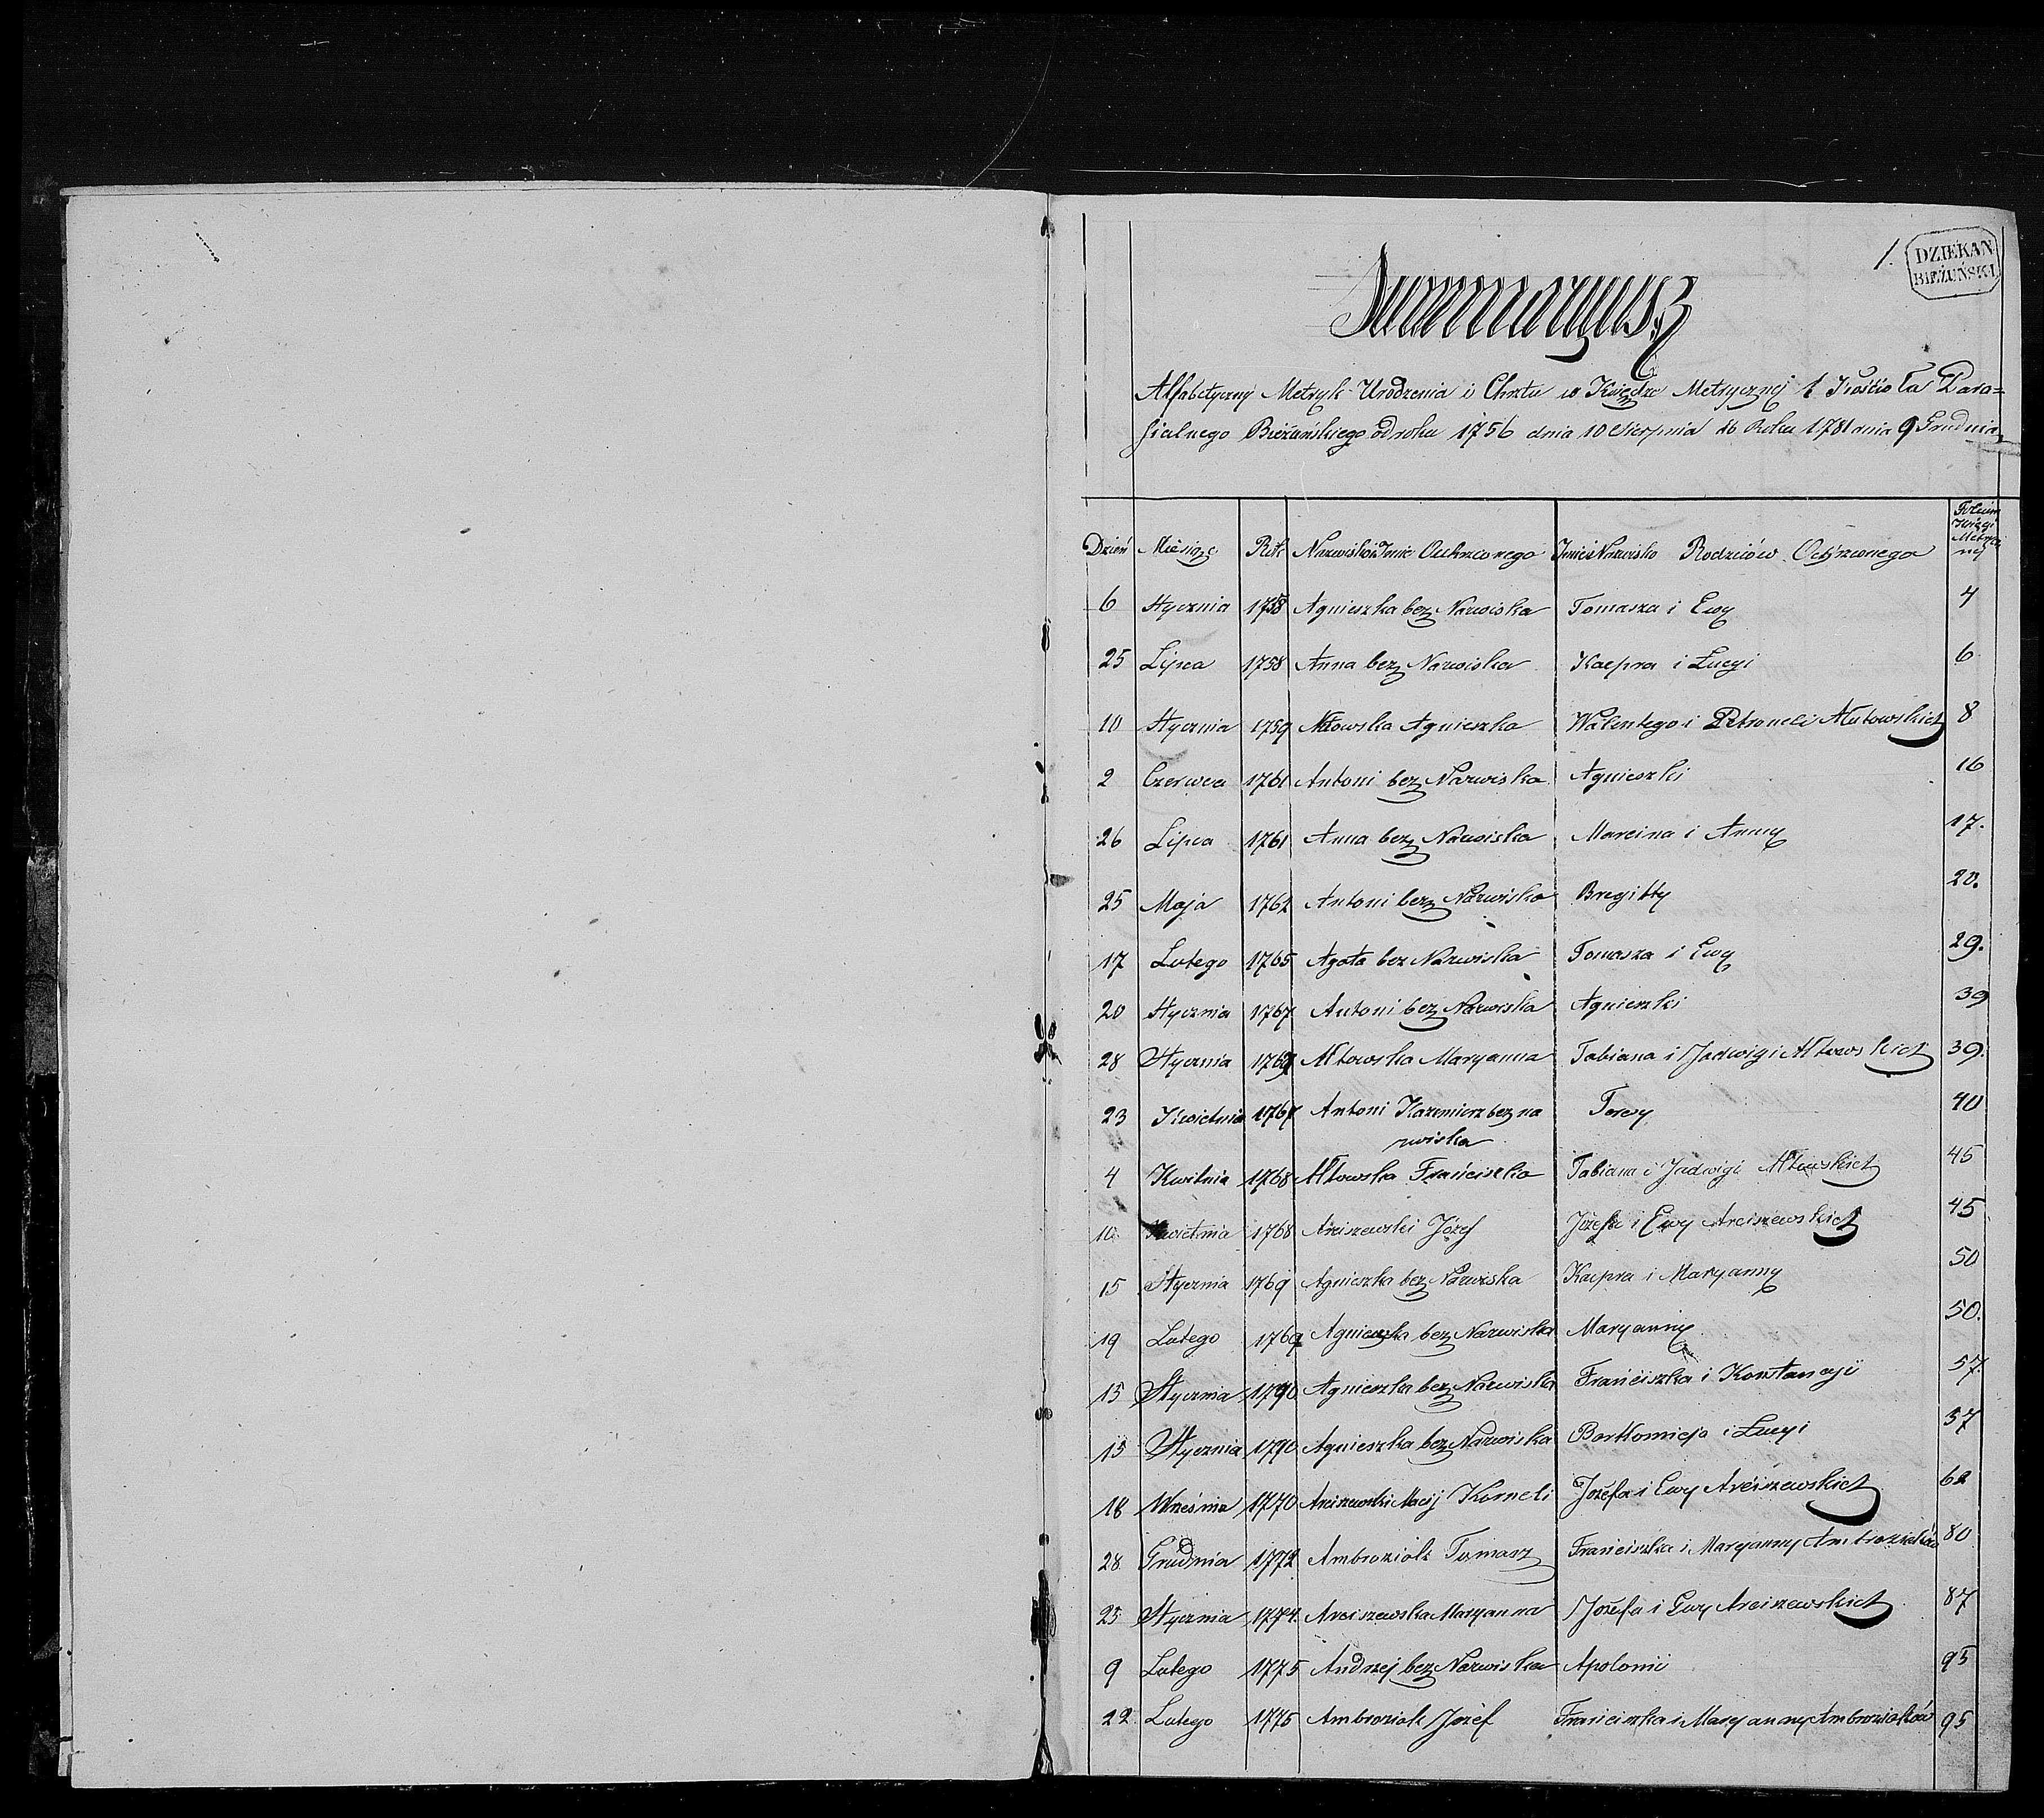 1.
DZIEKAN
BIEŻUŃSKI
Summaryusz
Alfabetyczny Metryk Urodzenia i Chrztu w Księdze Metrycznej 1 Kościoła Para=
fialnego Bieżuńskiego od roku 1756 dnia 10 Sierpnia do Roku 1781 dnia 9 Grudnia
Dzień Miesiąc Rok Nazwisko i Imie Ochrzconego Imie i Nazwisko Rodziców Ochrzconego Folium Księgi Metrycznej
6 Stycznia 1758 Agnieszka bez Nazwiska Tomasza i Ewy 4
25 Lipca 1758 Anna bez Nazwiska Kacpra i Łucyi 6
10 Stycznia 1759 Ałtowska Agnieszka Walentego i Petroneli Ałutowskich 8
2 Czerwca 1761 Antoni bez Nazwiska Agnieszki 16
26 Lipca 1761 Anna bez Nazwiska Marcina i Anny 17.
25 Maja 1762 Antoni bez Nazwiska Bregitty 20.
17 Lutego 1765 Agata bez Nazwiska Tomasza i Ewy 29.
20 Stycznia 1767 Antoni bez Nazwiska Agnieszki 39
28 Stycznia 1767 Ałtowska Maryanna Fabiana i Jadwigi Ałtowskich 39.
23 Kwietnia 1767 Antoni Kazimierz bez na
zwiska Teresy 40
4 Kwitnia 1768 Ałtowska Franciszka Fabiana i Jadwigi Ałtowskich 45
10 Kwietnia 1768 Arciszewski Józef Józefa i Ewy Arciszewskich 45
15 Stycznia 1769 Agnieszka bez Nazwiska Kacpra i Maryanny 50
19 Lutego 1769 Agnieszka bez Nazwiska Maryanny 50.
15 Stycznia 1770 Agnieszka bez Nazwiska Franciszka i Konstancyi 57.
15 Stycznia 1770 Agnieszka bez Nazwiska Bartłomieja i Łucyi 57
18 Września 1770 Arciszewski Macij Korneli Józefa i Ewy Arciszewskich 62
28 Grudnia 1772 Ambroziak Tomasz Franciszka i Maryanny Ambroziaków 80
25 Stycznia 1774. Arciszewska Maryanna Józefa i Ewy Arciszewskich 87
9 Lutego 1775 Andrzej bez Nazwiska Apolonii 95
22 Lutego 1775 Ambroziak Józef Franciszka i Maryanny Ambroziaków 95